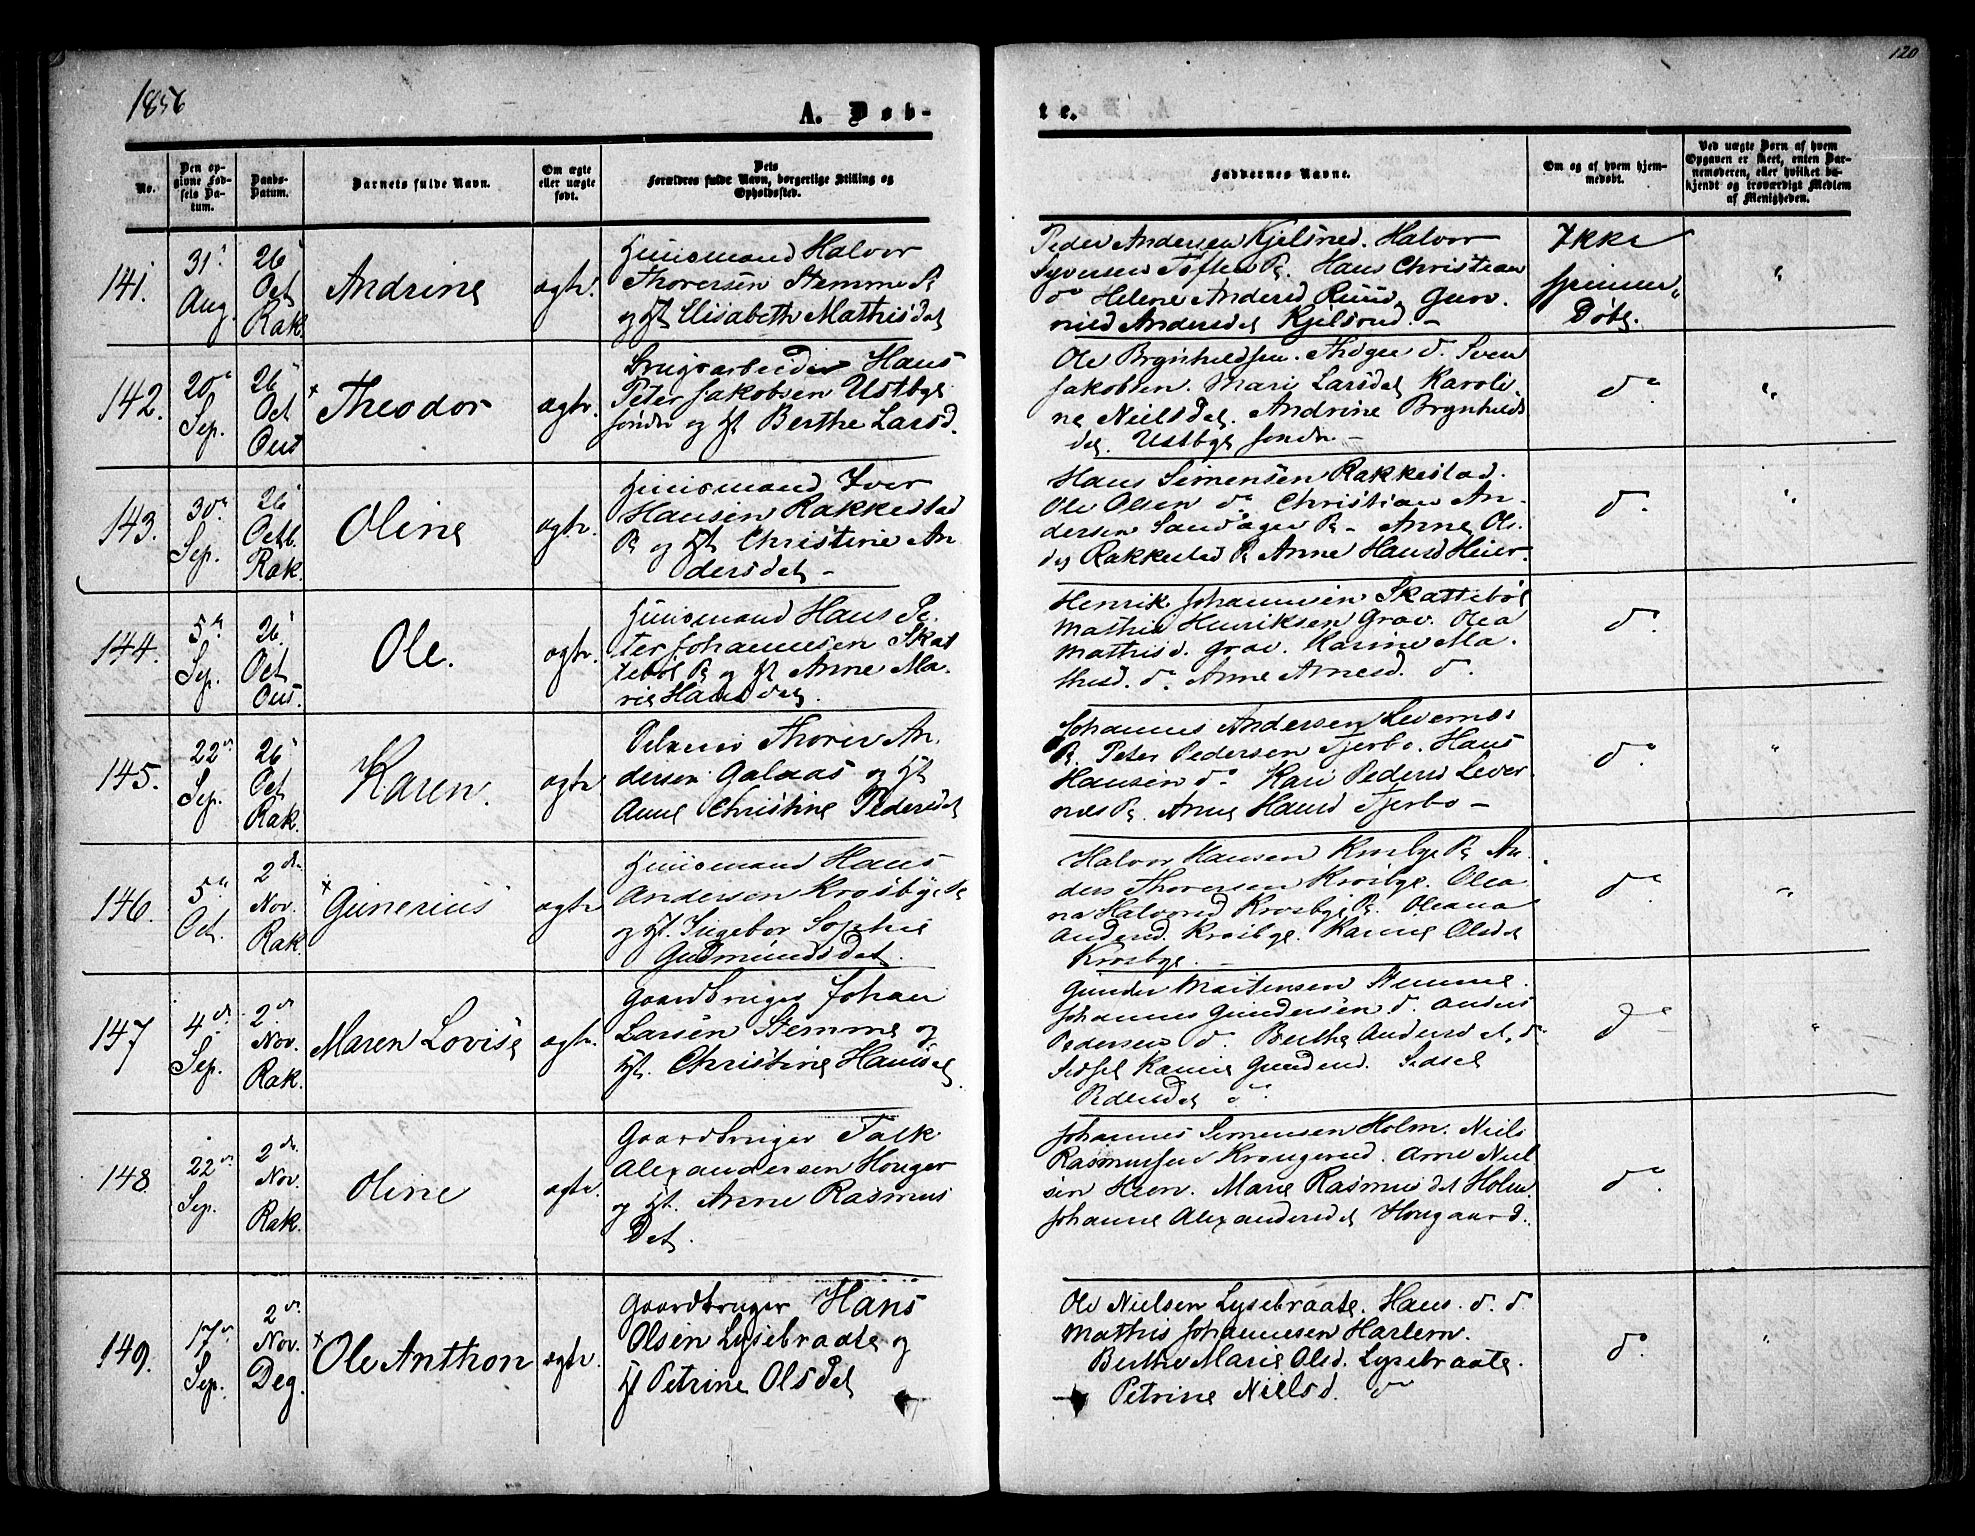 1856
120
A. Døb-
te.
No.
Den op-
givne Fød-
sels Da-
tum.
Daabs-
Datum.
Barnets fulde Navn.
Om ægte
eller uægte
født.
Dets
Forældres fulde Navn, borgerlige Stilling og
Opholdssted.
Faddernes Navne.
Om og af hvem hjem-
medøbt.
Ved uægte Børn af hvem
Opgaven er skeet, enten Bar-
nemoderen, eller hvilket be-
kjendt og troværdigt Medlem
af Menigheden.
141.
31
Aug.
26
Oct
Rak.
Andrine
ægte.
Huusmand Halvor
Thoresen Stemme
og H Elisabeth Mathisdat
Peder Andersen Kjelsrud. Halvor
Syversen Toften R. Hans Christian
do Helene Andersd Ruud, Gun-
nild Andersdat Kjelsrud. -
Ikke
hjemme
Døbt.
"
142.
20
Sep.
26
Oct
Ous
× Theodor
ægte.
Brugsarbeider Hans
Peter Jakobsen Ustbye
søndre og H Berthe Larsd.
Ole Brynhildsen. Thoger do. Sven
Jakobsen. Mari Larsdat Karoli-
ne Nielsdat. Andrine Brynhilds
dat. Ustbye søndre -
do
"
143.
30
Sep.
26
Octb.
Rak.
Oline
ægte.
Huusmand Iver
Hansen Rakkestad
R og H Christine An
dersdat -
Hans Simensen Rakkestad.
Ole Olsen do Christian An-
dersen Sandager R - Anne Ols
dat Rakkestad R Anne Hansd Heier
do.
"
144.
5
Sep.
26
Oct
Ous.
Ole.
ægte.
Huusmand Hans Pe-
ter Johannesen Skat
tebøl R og H Anne Ma-
rie Hansdat.
Henrik Johannesen Skattebøl
Mathis Henriksen Grav. Olea
Mathisd. Grav. Karine Ma-
thisd. do. Anne Arnesd. do.
do.
145.
22
Sep.
26
Oct
Rak.
Karen.
ægte
Thorer An-
dersen Galaas og H
Anne Christine Pedersdat
Johannes Andersen Levernes
R. Peter Pedersen Tjerbo. Hans
Hansen do. Kari Pedersd Lever-
næs R. Anne Hansd Tjerbo -
do.
"
146.
5
Oct.
2
Nov.
Rak.
× Gunerius
ægte
Huusmand Hans
Andersen Krosbye
og H. Ingebor Sophie
Gudmundsdat.
Halvor Hansen Krosbye R An-
ders Thoresen Krosbye. Olea
na Halvorsd Krosbye R. Oleana
Andersd. Krosbye. Karine Olsdat
Krosbye. -
do
"
147
4
Sep.
2
Nov.
Rak.
Maren Lovise
ægte.
Gaardbruger Johan
Larsen Stemme og
H. Christine Hansdat.
Gunder Martensen Stemme.
Johannes Gundersen do. Anders
Pedersen do. Berthe Andersdat, do
Sidsel Karine Gundersd. Sidsel
Pedersdat do.
do
"
148
22
Sep.
2
Nov.
Rak.
Oline
ægte.
Gaardbruger Falk
Alexandersen Honger
og H. Anne Rasmus
Dat.
Johannes Simensen Holm. Niels
Rasmussen Krongerud. Arne Niel
sen Heen. Marie Rasmusdat Holm.
Johanne Alexandersdat Hongaard.
do.
149.
17
Sep.
2
Nov.
Deg.
× Ole Anthon
ægte.
Gaardbruger Hans
Olsen Lysebraate og
H Petrine Olsdat
Ole Nielsen Lysebraate. Hans. do. do
Mathis Johannesen Harlem.
Berthe Marie Olsd. Lysebraate.
Petrine Nielsd. do
do.
"